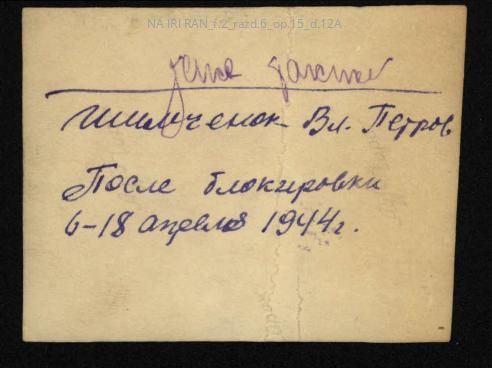 NA IRI RAN_f.2_razd.6_op.15_d.12A
Вл. Петров
После блокировки
6-18 апреля 1944 г.